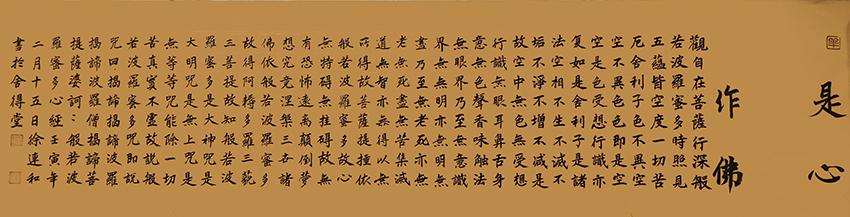 是心
作佛
觀自在菩薩行深般
若波羅蜜多時照見
五蘊皆空度一切苦
厄舍利子色不異空
空不異色色即是空
空是色受想行識亦
復如是舍利子是諸
法空相不生不滅不
垢不淨不增不減是
故空中無色無受想
行識無眼耳鼻舌身
意無色聲香味觸法
無眼界乃至無意識
界無無明亦無無明
盡乃至無老死亦無
老無死盡無苦集滅
道無智亦無得以無
所得故菩提捶依
般若波羅蜜多故心
無掛礙無掛礙故無
有恐怖遠離顛倒夢
想究竟涅槃三世諸
佛依般若波羅蜜多
故得阿耨多羅三藐
三菩提故知般若波
羅蜜多是大神咒是
大明咒是無上咒是
無等等咒能除一切
苦真實不虛故說般
若波羅蜜多咒即說
咒曰揭諦揭諦波羅
揭諦波羅僧揭諦菩
提薩婆訶〻般若波
羅蜜多心經壬寅年
二月十五日徐連和
書於舍得堂